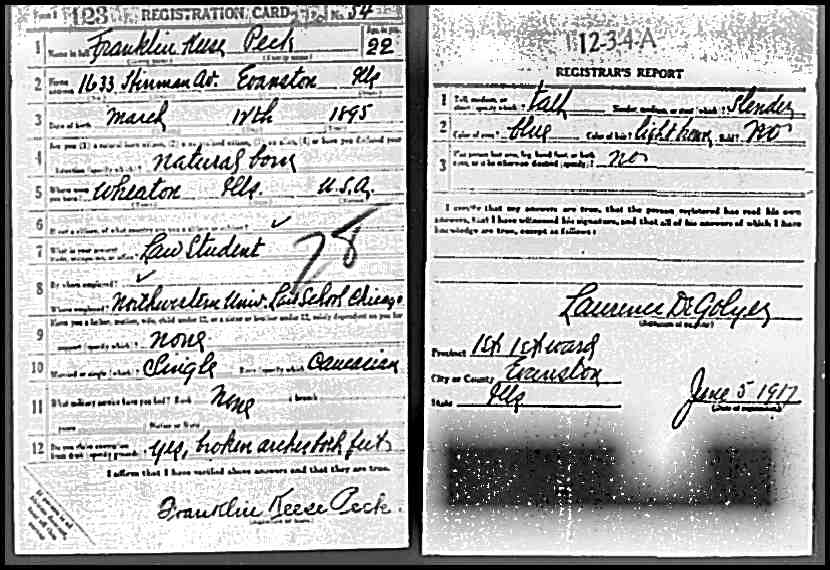 Form 1 123 REGISTRATION CARD No. 54
1 Name in full Franklin Reese Peck Age, in yrs. 22
2 Home address 1633 Hinman Av. Evanston Ills
3 Date of birth March 12th 1895
4 Are you (1) a natural born citizen, (2) a naturalized citizen, (3) an alien, (4) or have you declared your
intention (specify which)? natural born
5 Where were you born? Wheaton Ills. U.S.A.
6 If not a citizen, of what country are you a citizen or subject?
7 What is your present trade, occupation, or office? Law Student
28
8 By whom employed?
Where employed? Northwestern Univ. Law School Chicago
9 Have you a father, mother, wife, child under 12, or a sister or brother under 12, solely dependent on you for
support (specify which)? none
10 Married or single (which)? Single Race (specify which)? Caucasian
11 What military service have you had? Rank None branch
years Nation or State
12 Do you claim exemption from draft (specify grounds)? yes, broken arches both feet
I affirm that I have verified above answers and that they are true.
Franklin Reese Peck
(Signature or mark)
12-3-4-A
REGISTRAR'S REPORT
1 Tall, medium, or short (specify which)? tall Slender, medium, or stout (which)? slender
2 Color of eyes? blue Color of hair? light brown Bald? No
3 Has person lost arm, leg, hand, foot, or both eyes, or is he otherwise disabled (specify)? no
I certify that my answers are true, that the person registered has read his own
answers, that I have witnessed his signature, and that all of his answers of which I have
knowledge are true, except as follows:
Laurence DeGolyer
(Signature of registrar)
Precinct 1st 1st ward
City or County Evanston
State Ills
June 5 1917
(Date of registration)